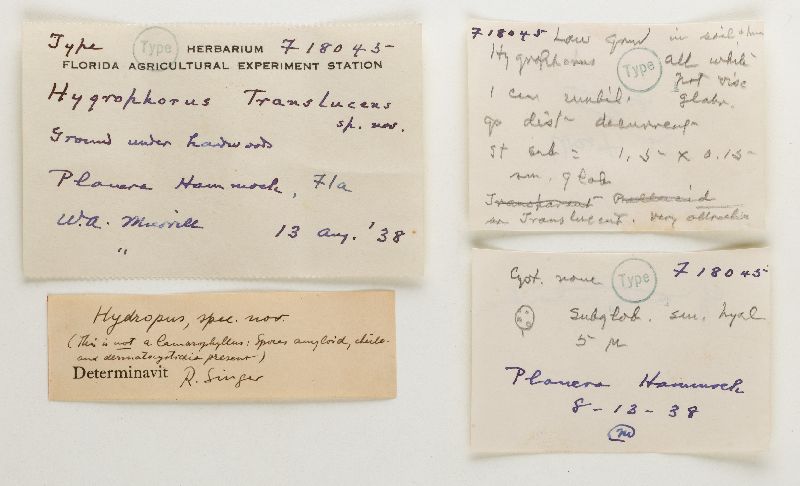 Type Type HERBARIUM F 18045
FLORIDA AGRICULTURAL EXPERIMENT STATION
Hygrophorus Translucens
sp. nov.
Ground under hardwoods
Planera Hammock, Fla
W.A. Murrill 13 Aug. '38
"
Hydropus, spec. nov.
(This is not a Camarophyllus: Spores amyloid, cheilo-
and dermatocystidia present.)
Determinavit R. Singer
F 18045 Low grnd in soil
Hygrophorus Type all white
not visc
1 cm umbil. glabr.
gs dist decurrent
st sub = 1.5 x 0.15
sm. glab
Transparent Pellucid
or Translucent. Very attractive
Got. none Type F 18045
Subglob. sm. hyal
5 µ
Planera Hammock
8-13-38
m